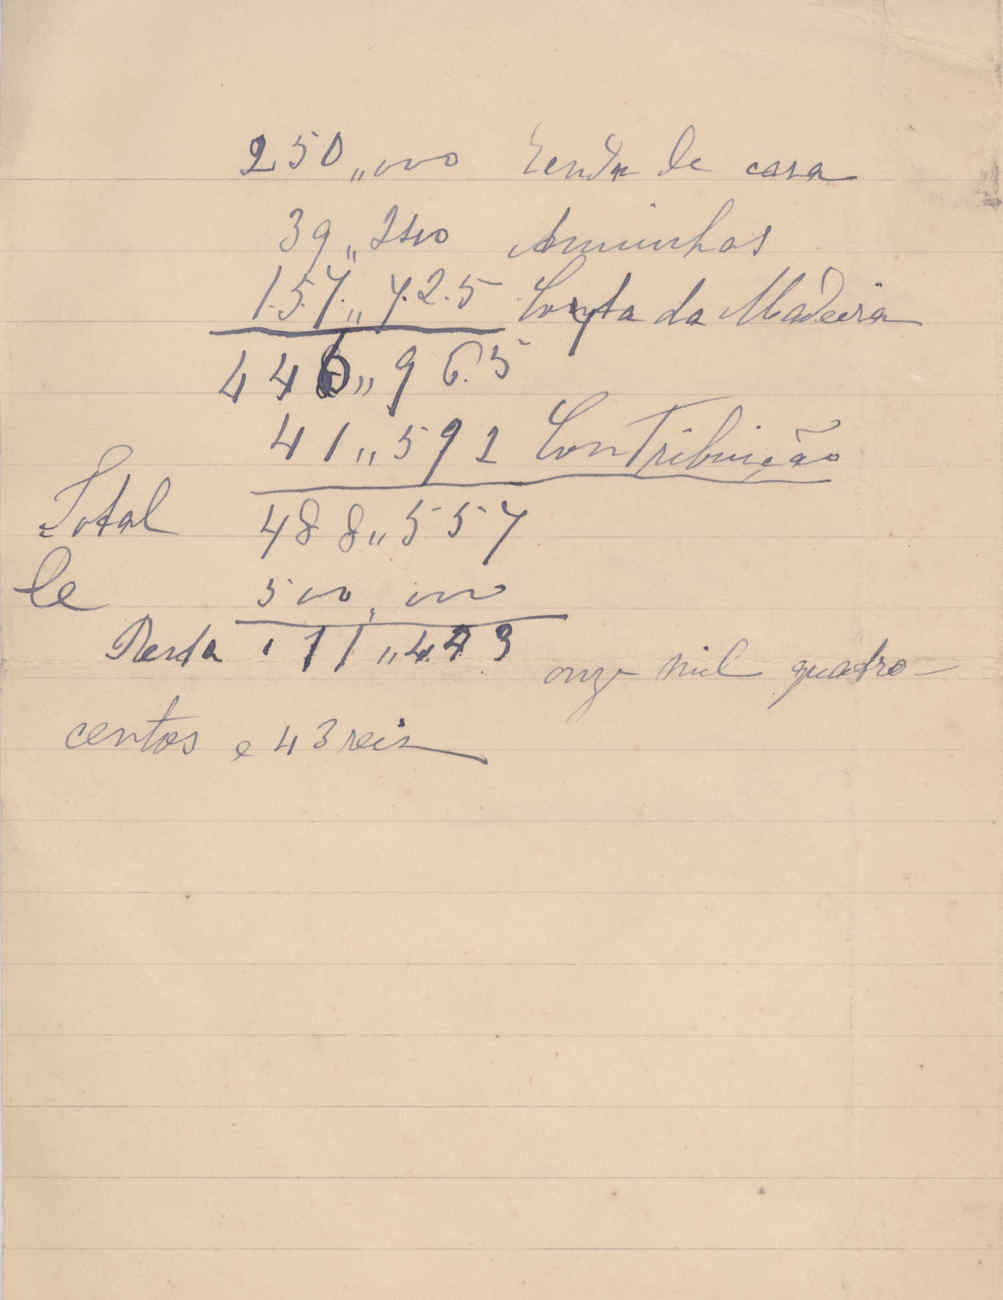 250,,000 renda de casa
39,,240 Aminhas
157,,725 Conta da Madeira
446,,965
41,,592 Contribuição
Total 488,,557
de 500,000
Resta 11,,443 onze mil quatro-
centos e 43 reis